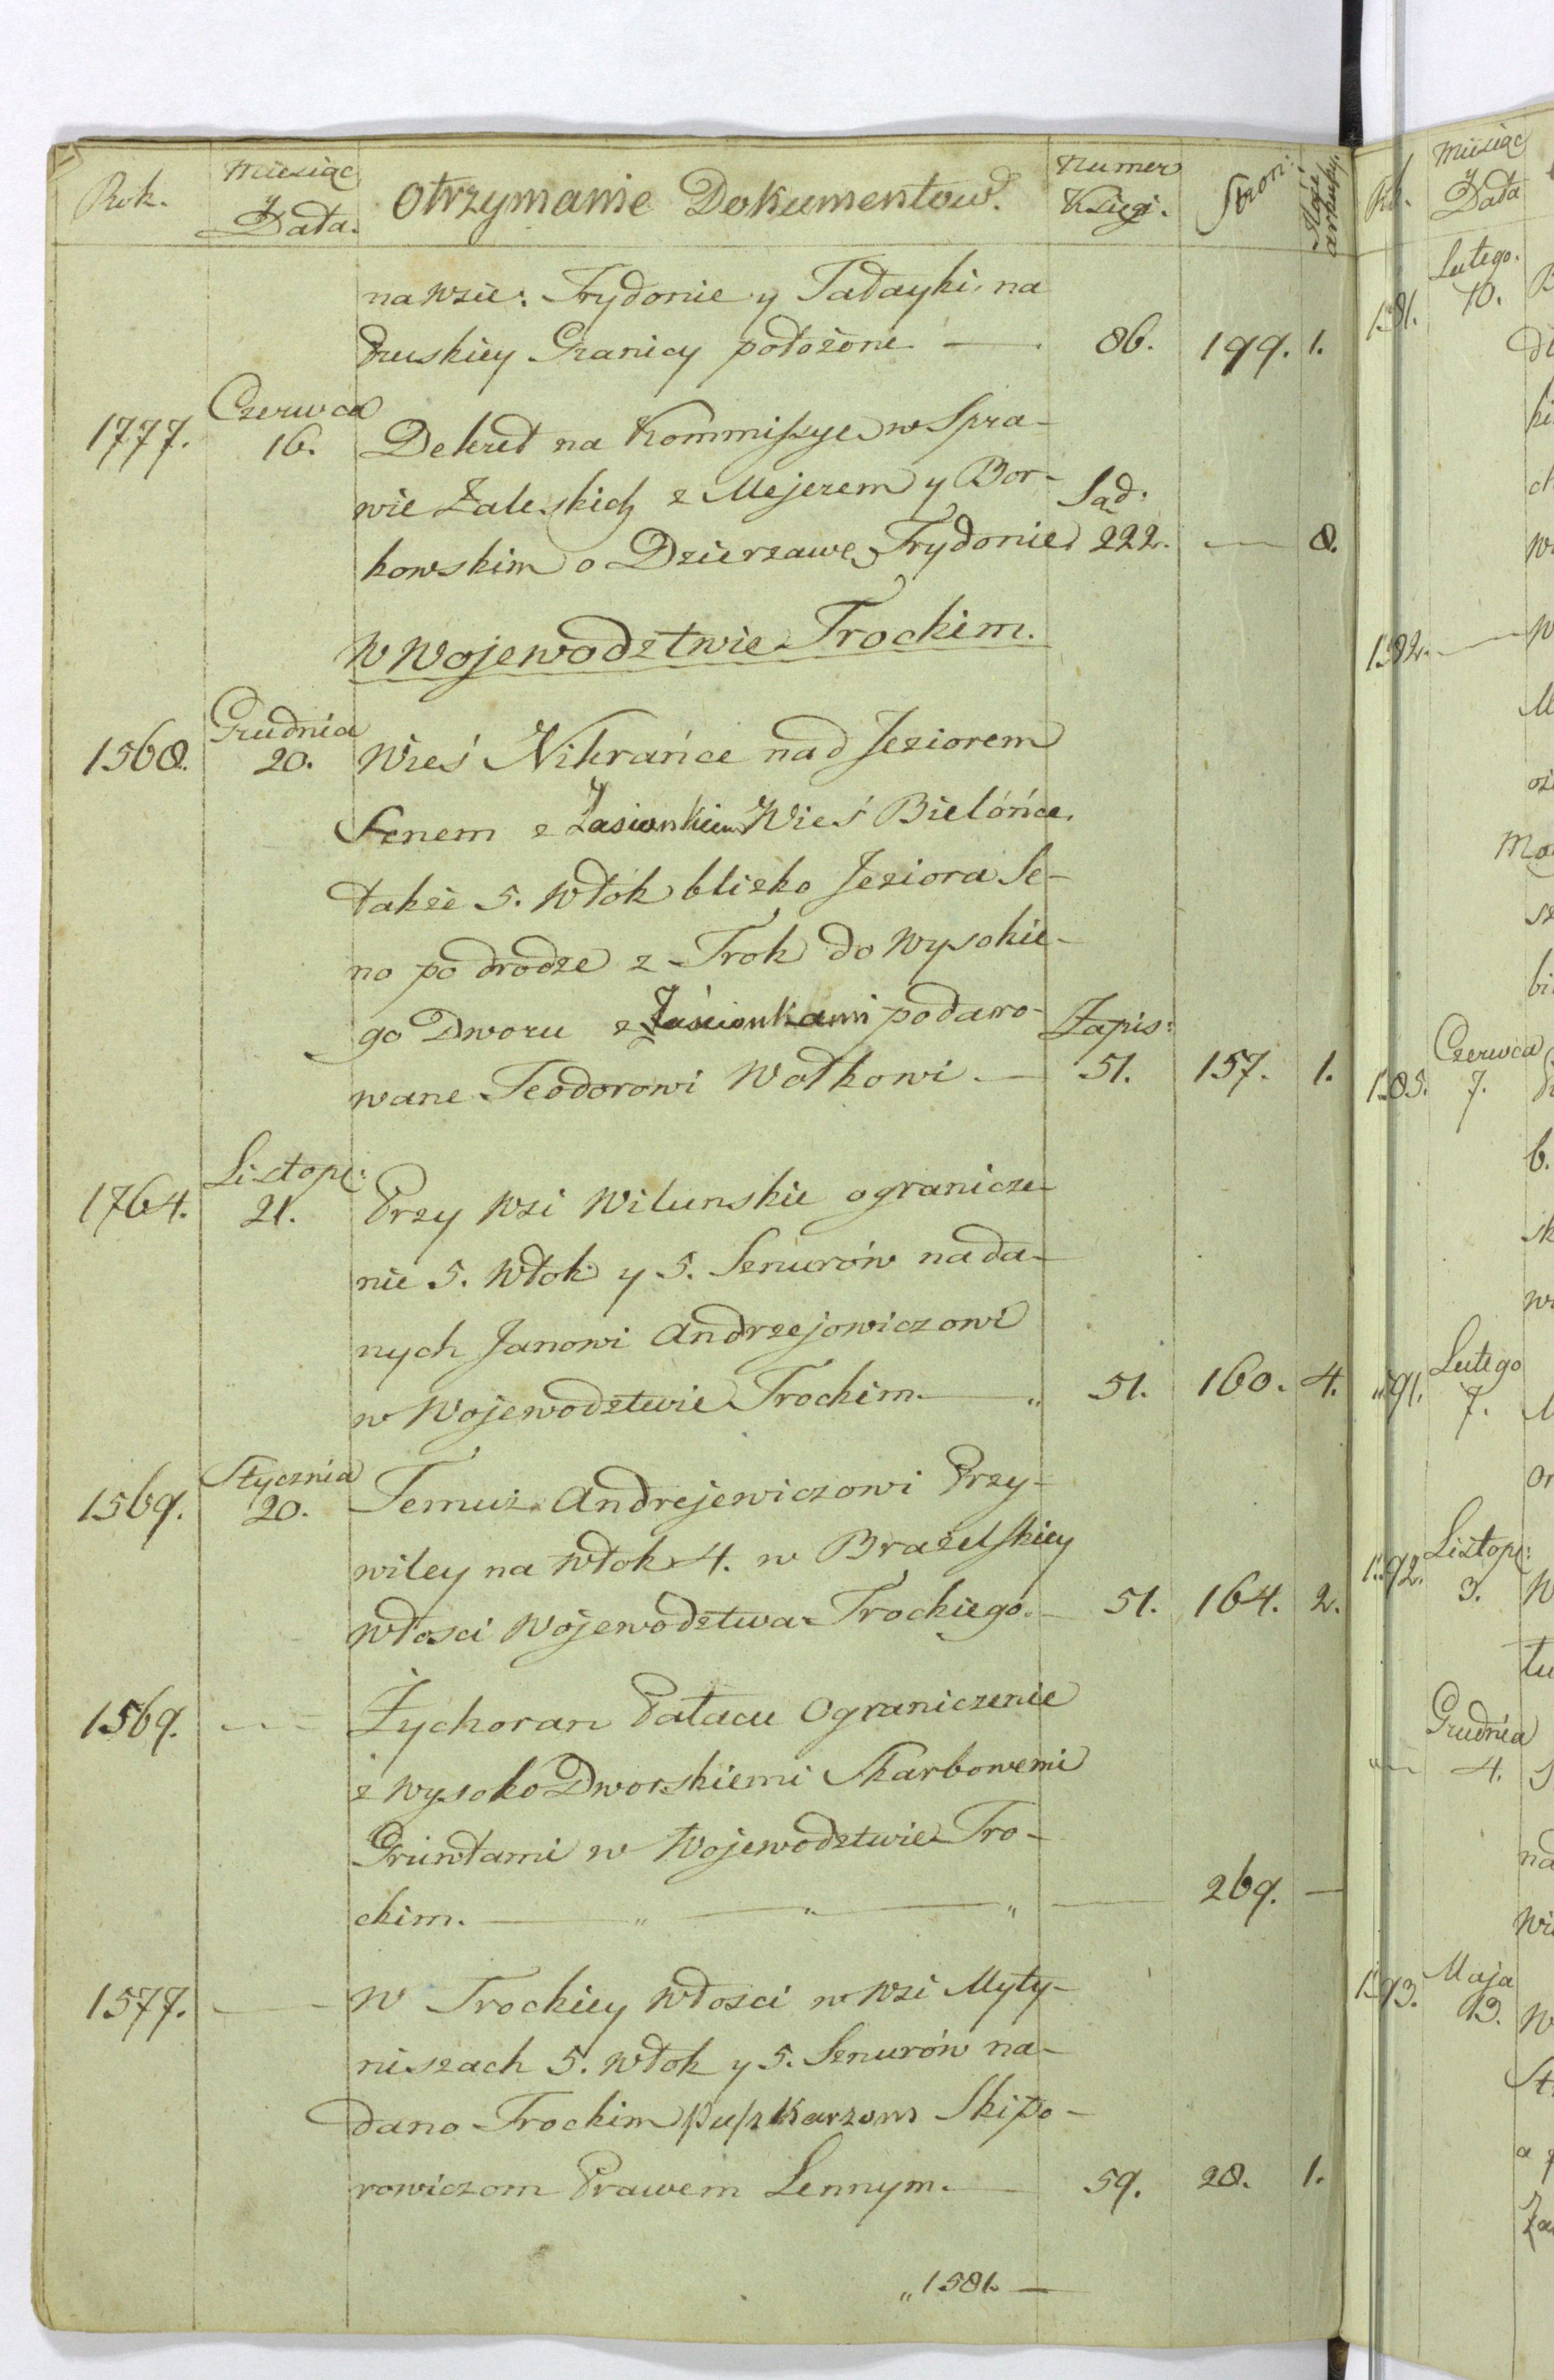 Rok. Miesiąc y Data. Otrzymanie Dokumentow. Numer Księgi. Stron: Ilość arkuszy.
na wsie: Frydonie y Tatayki, na
Pruskiey Granicy położone. — 86. 199. 1.
1777. Czerwca 16. Dekret na Kommissye w Spra-
wie Zaleskich z Mejerem y Bor- Sąd:
kowskim o Dzierzawe Frydonie 222. — 8.
W Wojewodztwie Trockim.
1568. Grudnia 20. Wieś Nikrańce nad Jeziorem
Senem z Zasiankiem Wieś Bielońce,
także 5. Włok blizko Jeziora Se-
no po drodze z Trok do Wysokie-
go Dworu z Zaścionkami podaro- Zapis:
wane Teodorowi Wołkowi — 51. 157. 1.
1764. Listop: 21. Przy Wsi Wilunskie ogranicze-
nie 5. Włok y 5. Sznurów nada-
nych Janowi Andrzejowiczowi
w Wojewodztwie Trockim. — " 51. 160. 4.
1569. Stycznia 20. Temuż Andrejewiczowi Przy-
wiley na Włok 4. w Brażelskiey
Włosci Wojewodztwa Trockiego. — 51. 164. 2.
1569. — Żychoran Pałacu Ograniczenie
z Wysoko Dworskiemi Skarbowemi
Gruntami w Wojewodztwie Tro-
ckim. — " — " — " — 269. —
1577. — W Trockiey Włosci w Wsi Myty-
niszach 5. Włok y 5. Sznurów na-
dano Trockim puszkarzom Skipo-
rowiczom Prawem Lennym. — 59. 28. 1.
" 1581. —
Miesiąc y Data
Lutego. 10.
Czerwca 7.
Lutego 7.
Listop: 3.
Grudnia 4.
Maja 13.